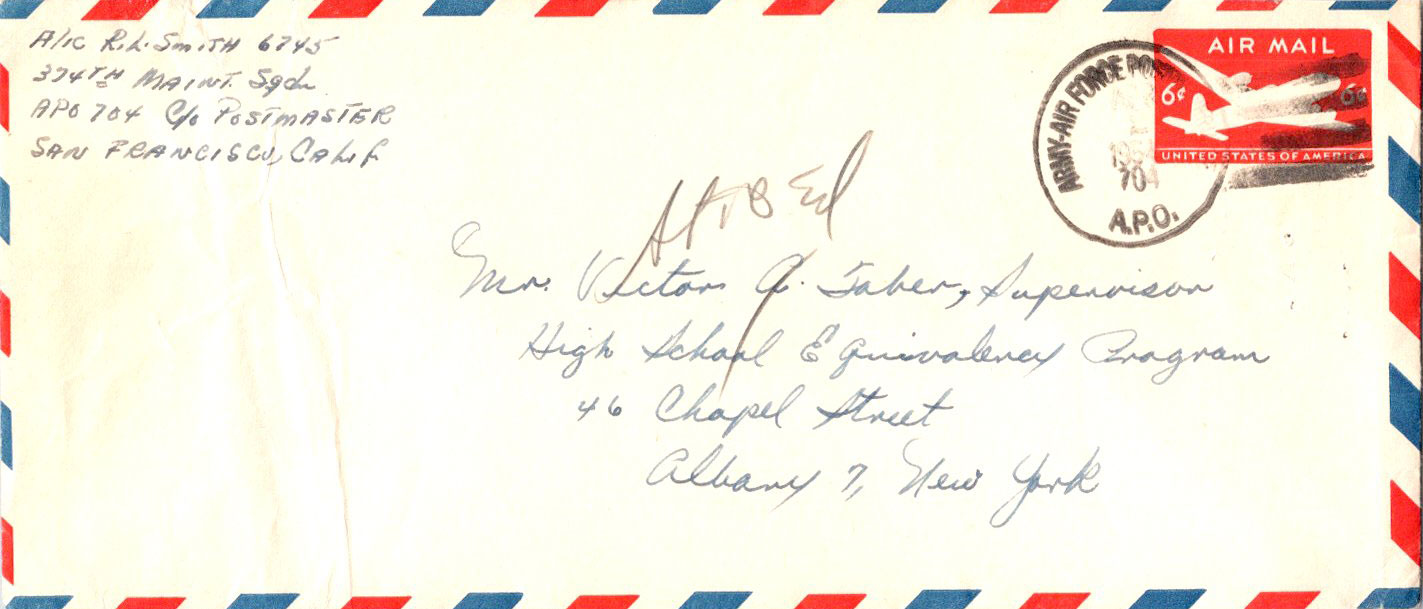 A/1C R.L. SMITH 6745
374TH MAINT. Sqdn.
APO 704 C/o POSTMASTER
SAN FRANCISCO, CALIF
AIR MAIL
6¢ 6¢
UNITED STATES OF AMERICA
ARMY-AIR FORCE POSTAL
704
A.P.O.
Ed
Mr. Victor A. Taber, Supervisor
High School Equivalency Program
46 Chapel Street
Albany 7, New York